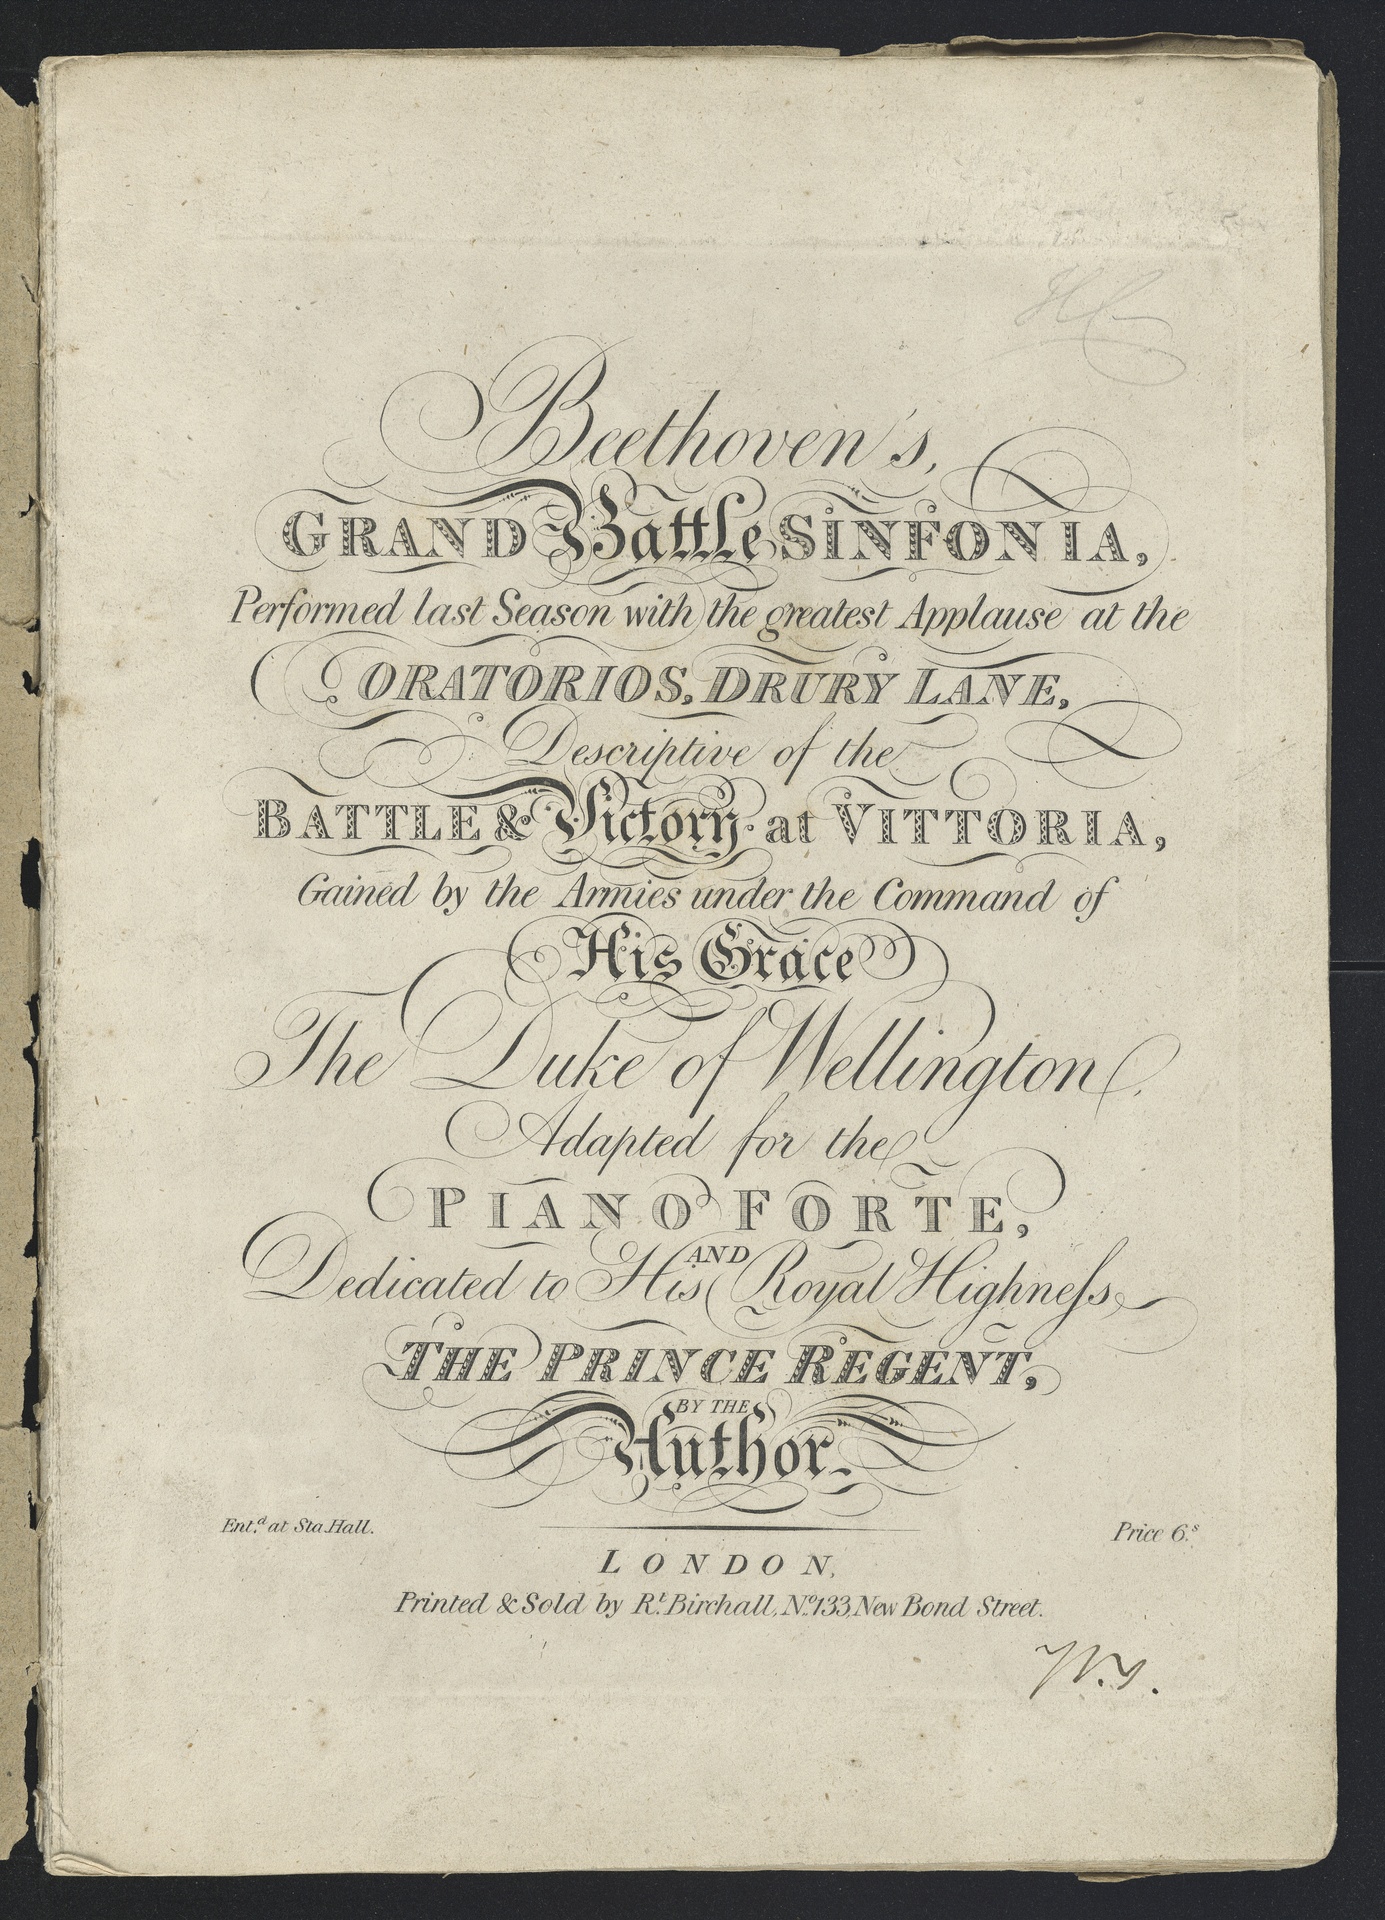 Beethoven's,
GRAND Battle SINFONIA,
Performed last Season with the greatest Applause at the
ORATORIOS, DRURY LANE,
Descriptive of the
BATTLE & Victory at VITTORIA,
Gained by the Armies under the Command of
His Grace
The Duke of Wellington,
Adapted for the
PIANO FORTE,
AND
Dedicated to His Royal Highneſs
THE PRINCE REGENT,
BY THE
Author.
Ent.d at Sta. Hall.
Price 6.s
LONDON,
Printed & Sold by R.t Birchall, N.o 133, New Bond Street.